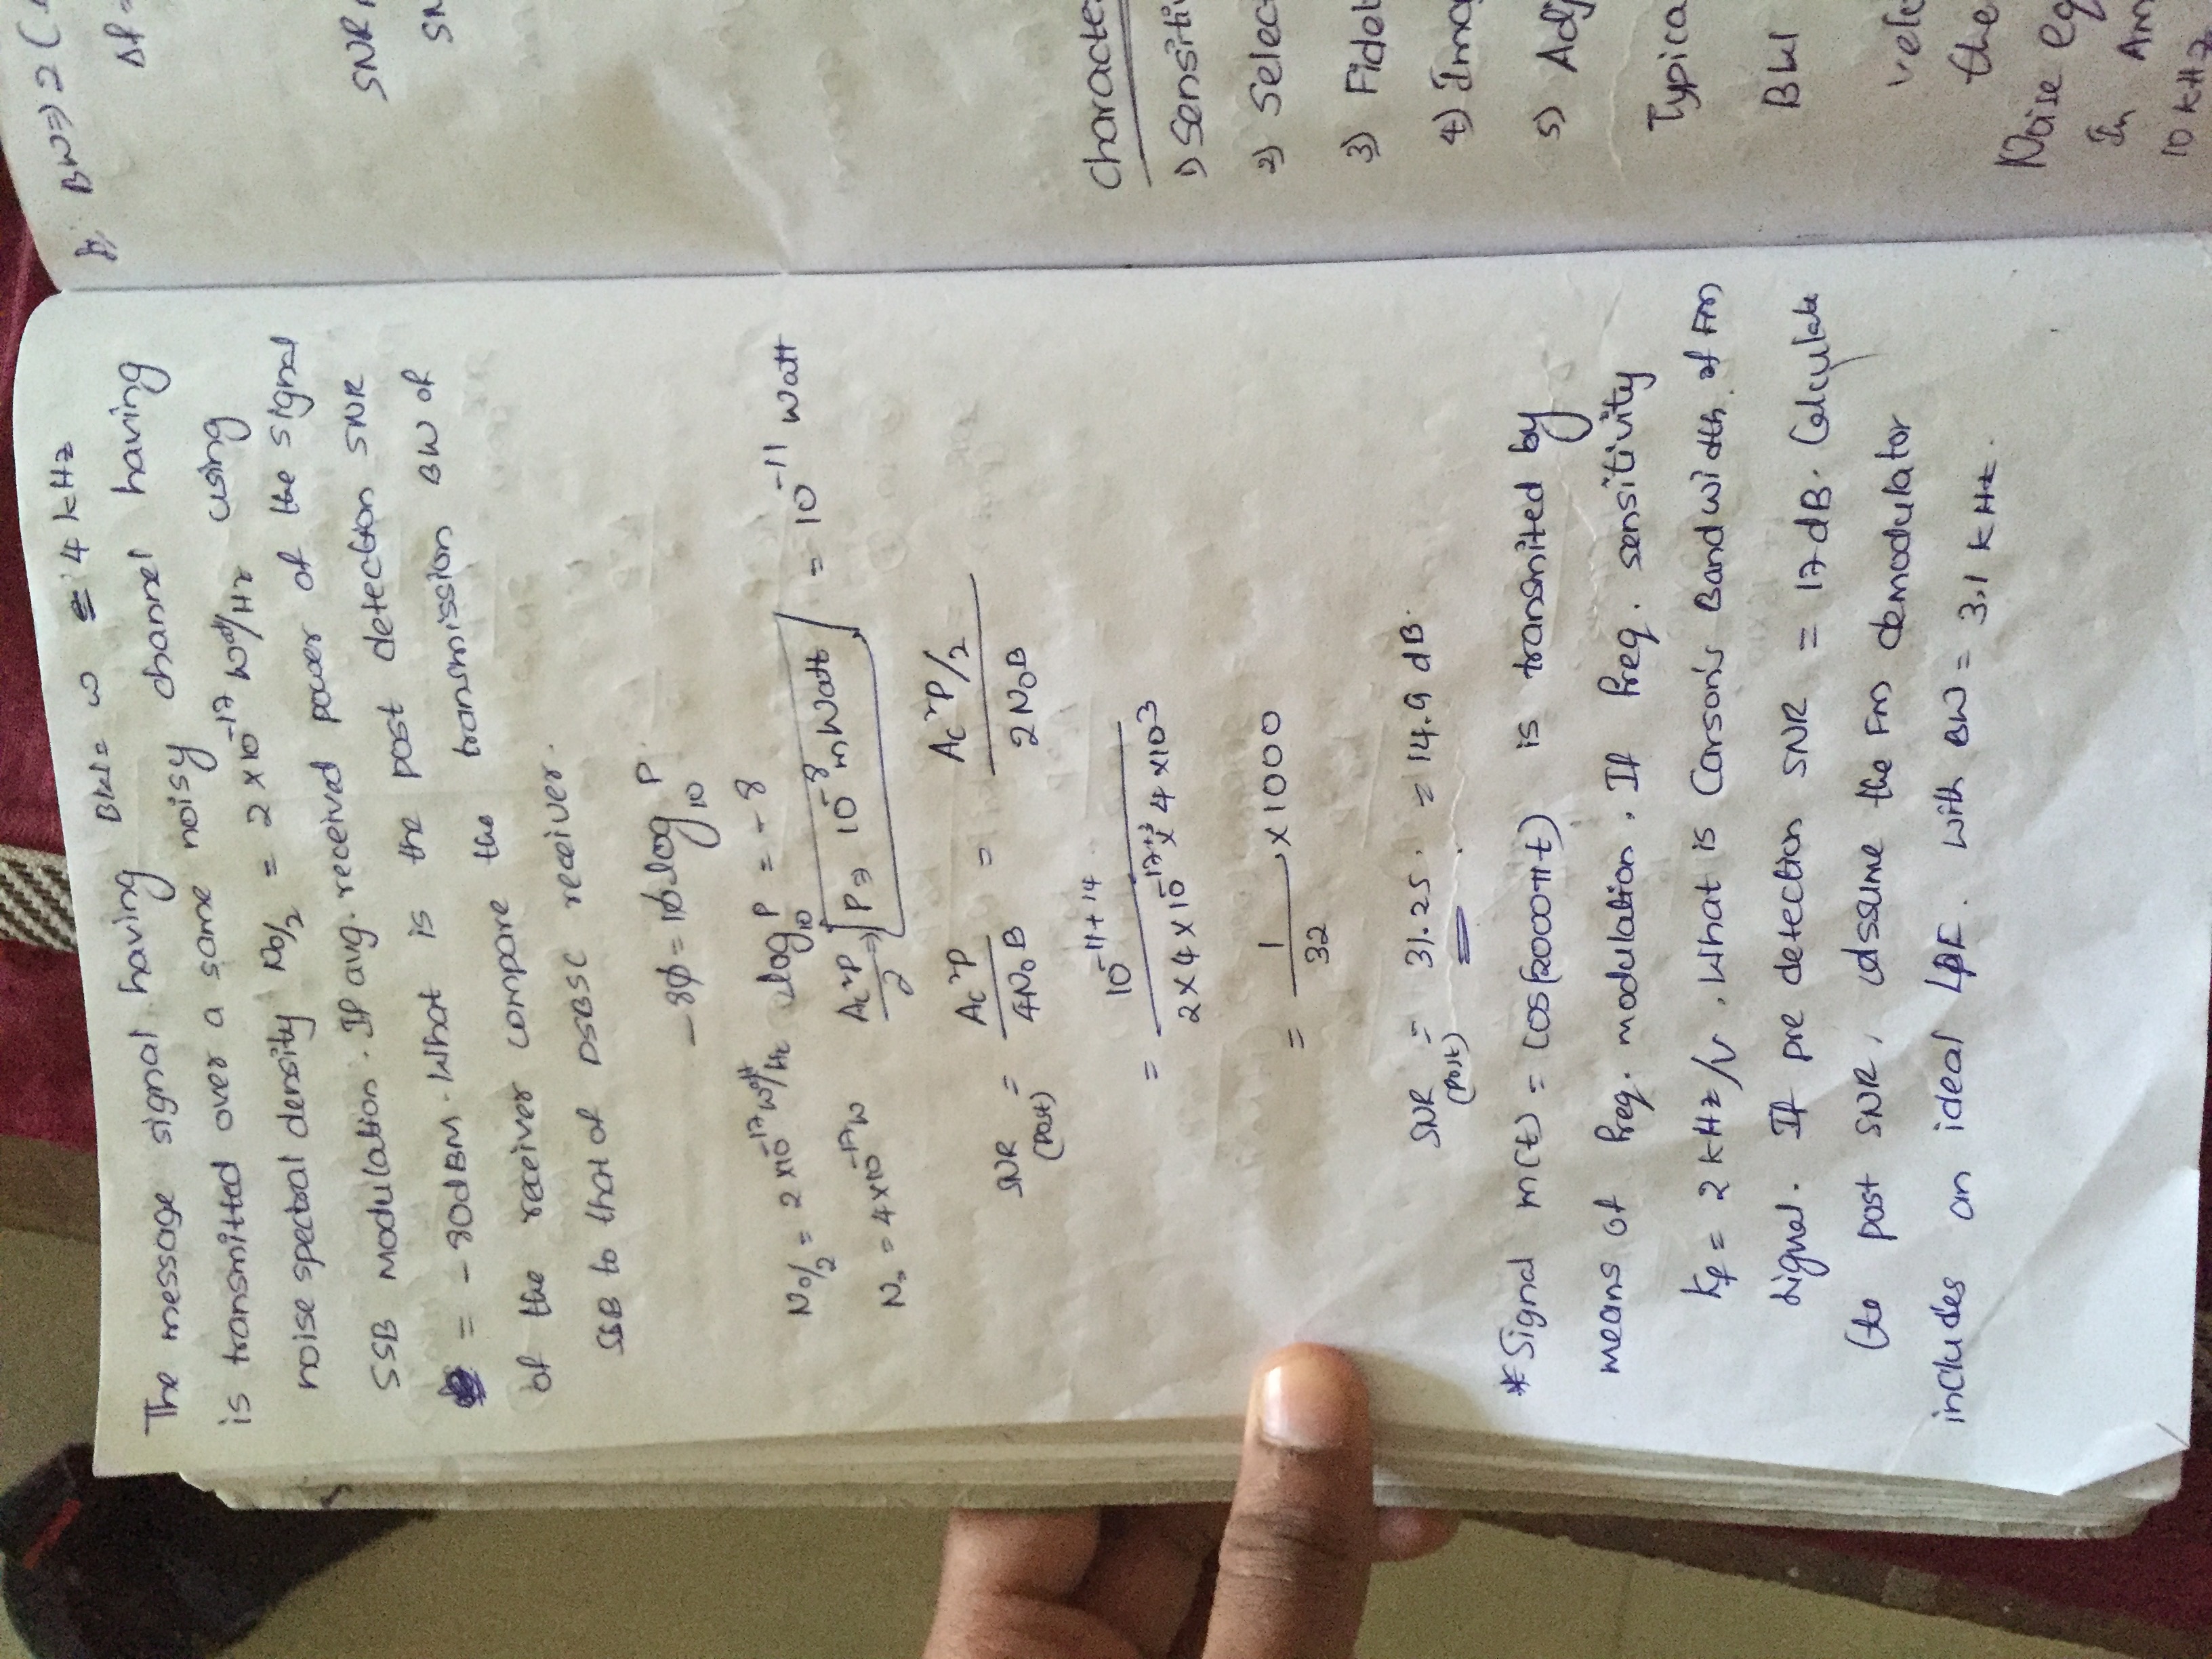 The message signal having BW = w = 4 kHz
is transmitted over a same noisy channel having
noise spectral density No/2 = 2 × 10^-17 Watt/Hz using
SSB Modulation. If avg. received power of the signal
= - 80dBM. What is the post detection SNR
of the receiver compare the transmission BW of
SSB to that of DSBSC receiver.
-80 = 10 log10 P
No/2 = 2 ×10^-17 Watt/Hz log10 P = -8
No = 4×10^-17 W Ac²P/2 ⇒ P ⇒ 10^-8 mWatt = 10^-11 Watt
SNR (post) = Ac²P / 4NoB = Ac²P/2 / 2NoB
= 10^-11+14 / 2×4×10^-17+3 × 4 ×10^3
= 1/32 ×1000
SNR (post) = 31.25 = 14.9 dB.
* Signal m(t) = cos(2000πt) is transmited by
means of freq. modulation. If freq. sensitivity
kf = 2 kHz/V. What is Carson's Bandwidth of FM
signal. If pre detection SNR = 17 dB. Calculate
the post SNR, Assume the FM demodulator
includes an ideal LPF. with BW = 3.1 kHz.
BW ⇒ 2 (
Δf =
SNR
Characte
1) Sensitiv
2) Selec
3) Fidel
4) Ima
5) Adj
Typica
BW
the
Noise eq
In AM
10 kHz